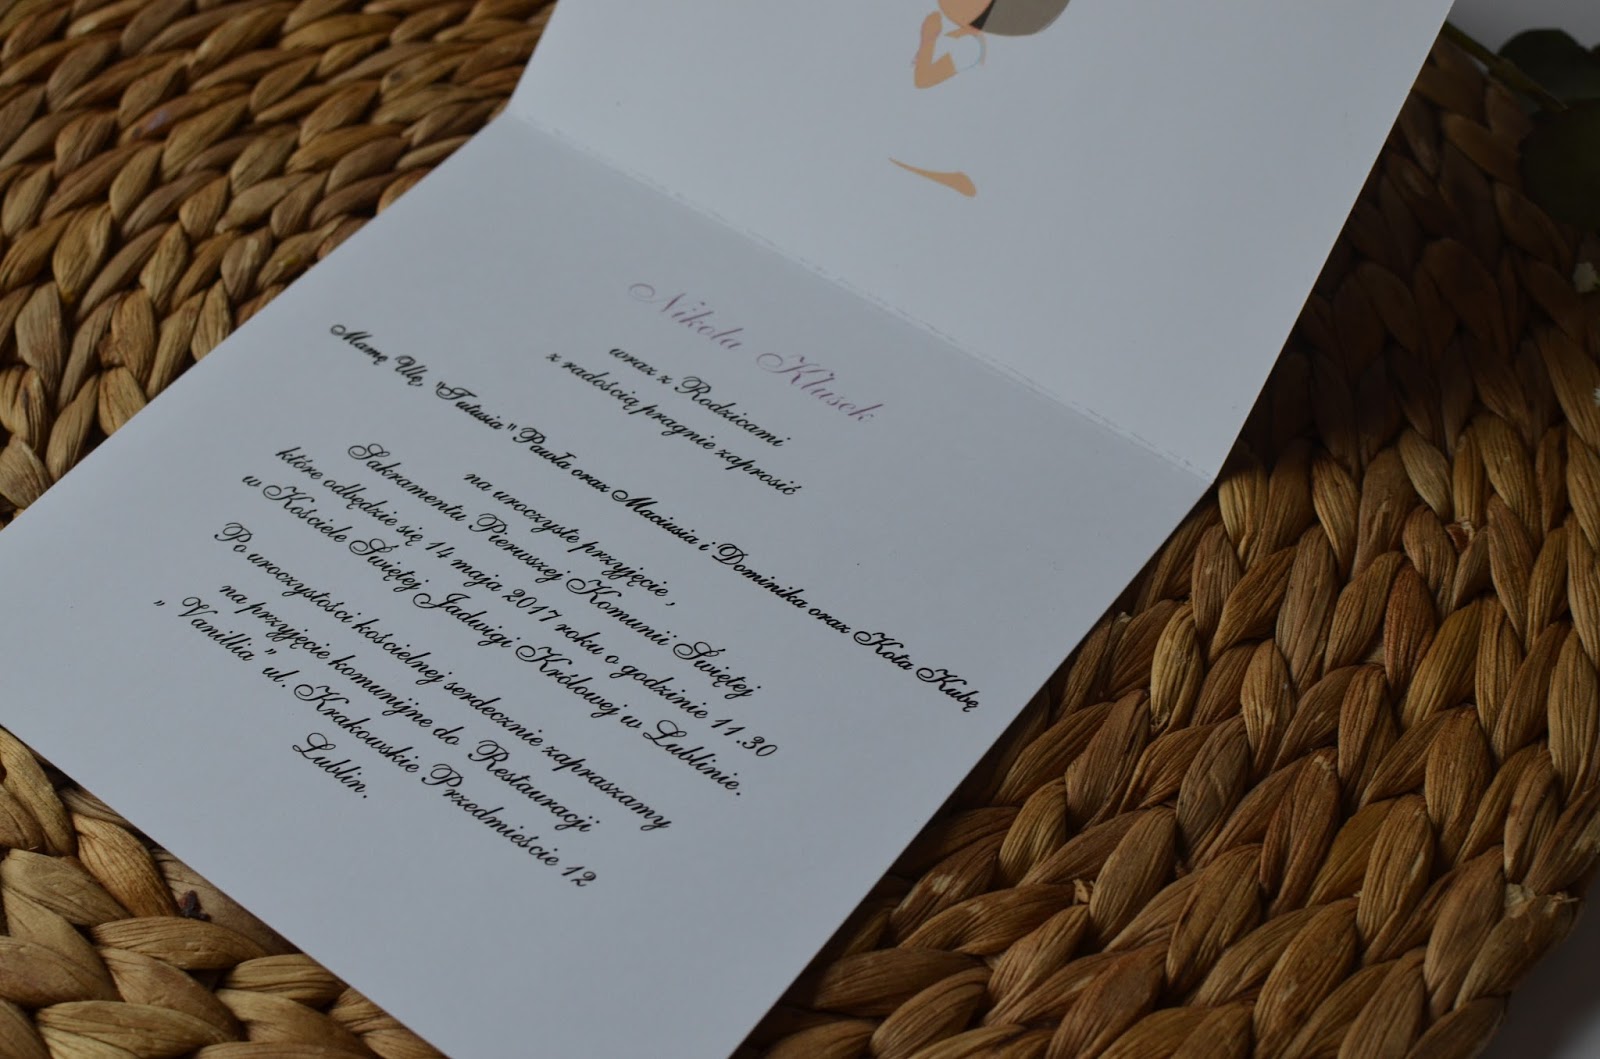 Nikola Kłusek
wraz z Rodzicami
z radością pragnie zaprosić
Mamę Ulę, "Tutusia" Pawła oraz Maciusia i Dominika oraz Kota Kubę
na uroczyste przyjęcie ,
Sakramentu Pierwszej Komunii Świętej
które odbędzie się 14 maja 2017 roku o godzinie 11.30
w Kościele Świętej Jadwigi Królowej w Lublinie.
Po uroczystości kościelnej serdecznie zapraszamy
na przyjęcie komunijne do Restauracji
„ Vanillia ” ul. Krakowskie Przedmieście 12
Lublin.